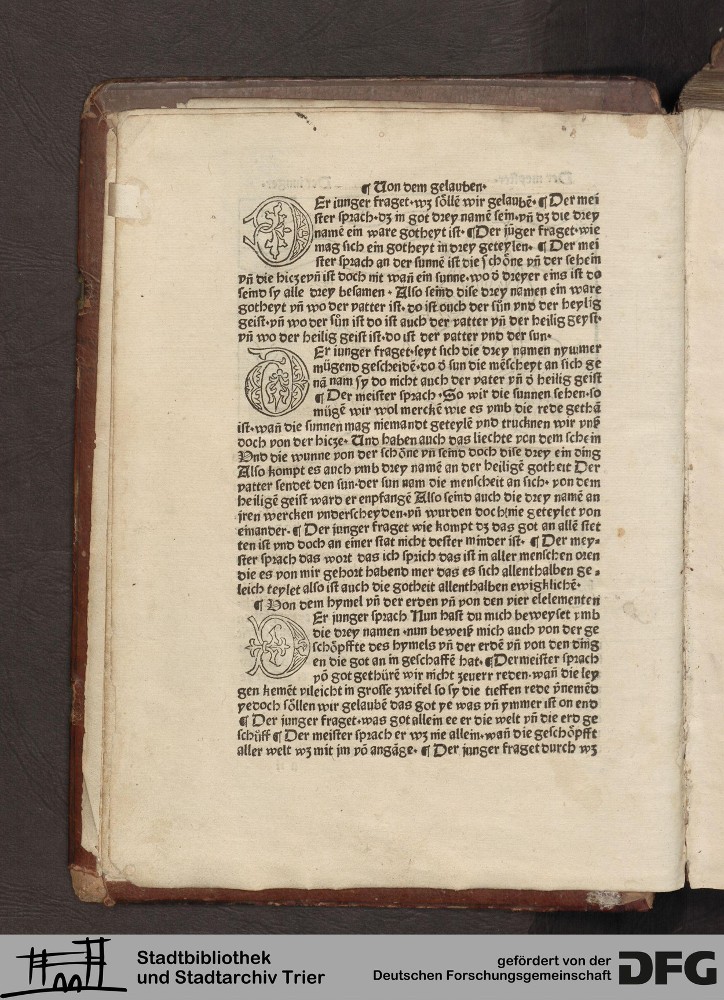 ¶ Von dem gelauben·
DEr iunger fraget·wz söllē wir gelaubē·¶ Der mei
ster sprach·dz in got drey namē sein·vñ dz die drey
namē ein ware gotheyt ist·¶ Der jüger fraget·wie
mag sich ein gotheyt in drey geteylen·¶ Der mei
ster sprach an der sunnē ist die schöne vñ der schein
vñ die hiczevñ ist doch nit wañ ein sunne·wo ð dreyer eins ist do
seind sy alle drey besamen·Also seind dise drey namen ein ware
gotheyt vñ wo der vatter ist·do ist ouch der sůn vnd der heylig
geist·vñ wo der sůn ist do ist auch der vatter vñ der heilig geyst·
vñ wo der heilig geist ist·do ist der vatter vnd der sun·
DEr iunger fraget·seyt sich die drey namen nymmer
mügend gescheidē·do ð sun die mēscheyt an sich ge
nā nam sy do nicht auch der vater vñ ð heilig geist
¶ Der meister sprach·So wir die sunnen sehen·so
mügē wir wol merckē wie es vmb die rede gethā
ist·wañ die sunnen mag niemandt geteylē vnd trucknen wir vnß
doch von der hicze·Vnd haben auch das liechte von dem schein
Vnd die wunne von der schöne vñ seind doch dise drey ein ding
Also kompt es auch vmb drey namē an der heiligē gotheit Der
vatter sendet den sun·der sun nam die menscheit an sich·von dem
heiligē geist ward er enpfangē Also seind auch die drey namē an
jren wercken vnderscheyden·vñ wurden doch nie geteylet von
einander·¶ Der junger fraget wie kompt dz das got an allē stet
ten ist vnd doch an einer stat nicht dester minder ist·¶ Der mey-
ster sprach das wort das ich sprich das ist in aller menschen oren
die es von mir gehort habend mer das es sich allenthalben ge-
leich teylet also ist auch die gotheit allenthalben ewigklichē·
¶ Von dem hymel vñ der erden vñ von den vier elelementen
DEr junger sprach Nun hast du mich beweyset vmb
die drey namen·nun beweiß mich auch von der ge
schöpffte des hymels vñ der erdē vñ von den ding
en die got an in geschaffē hat·¶ Dermeister sprach
vō got gethürē wir nicht zeuerr reden·wañ die ley
gen kemēt vileicht in grosse zwifel so sy die tieffen rede v̄nemēd
yedoch söllen wir gelaubē das got ye was vñ ymmer ist on end
¶ Der junger fraget·was got allein ee er die welt vñ die erd ge
schüff ¶ Der meister sprach er wz nie allein·wañ die geschöpfft
aller welt wz mit jm vō angāge·¶ Der junger fraget durch wz
Stadtbibliothek
und Stadtarchiv Trier
gefördert von der
Deutschen Forschungsgemeinschaft
DFG